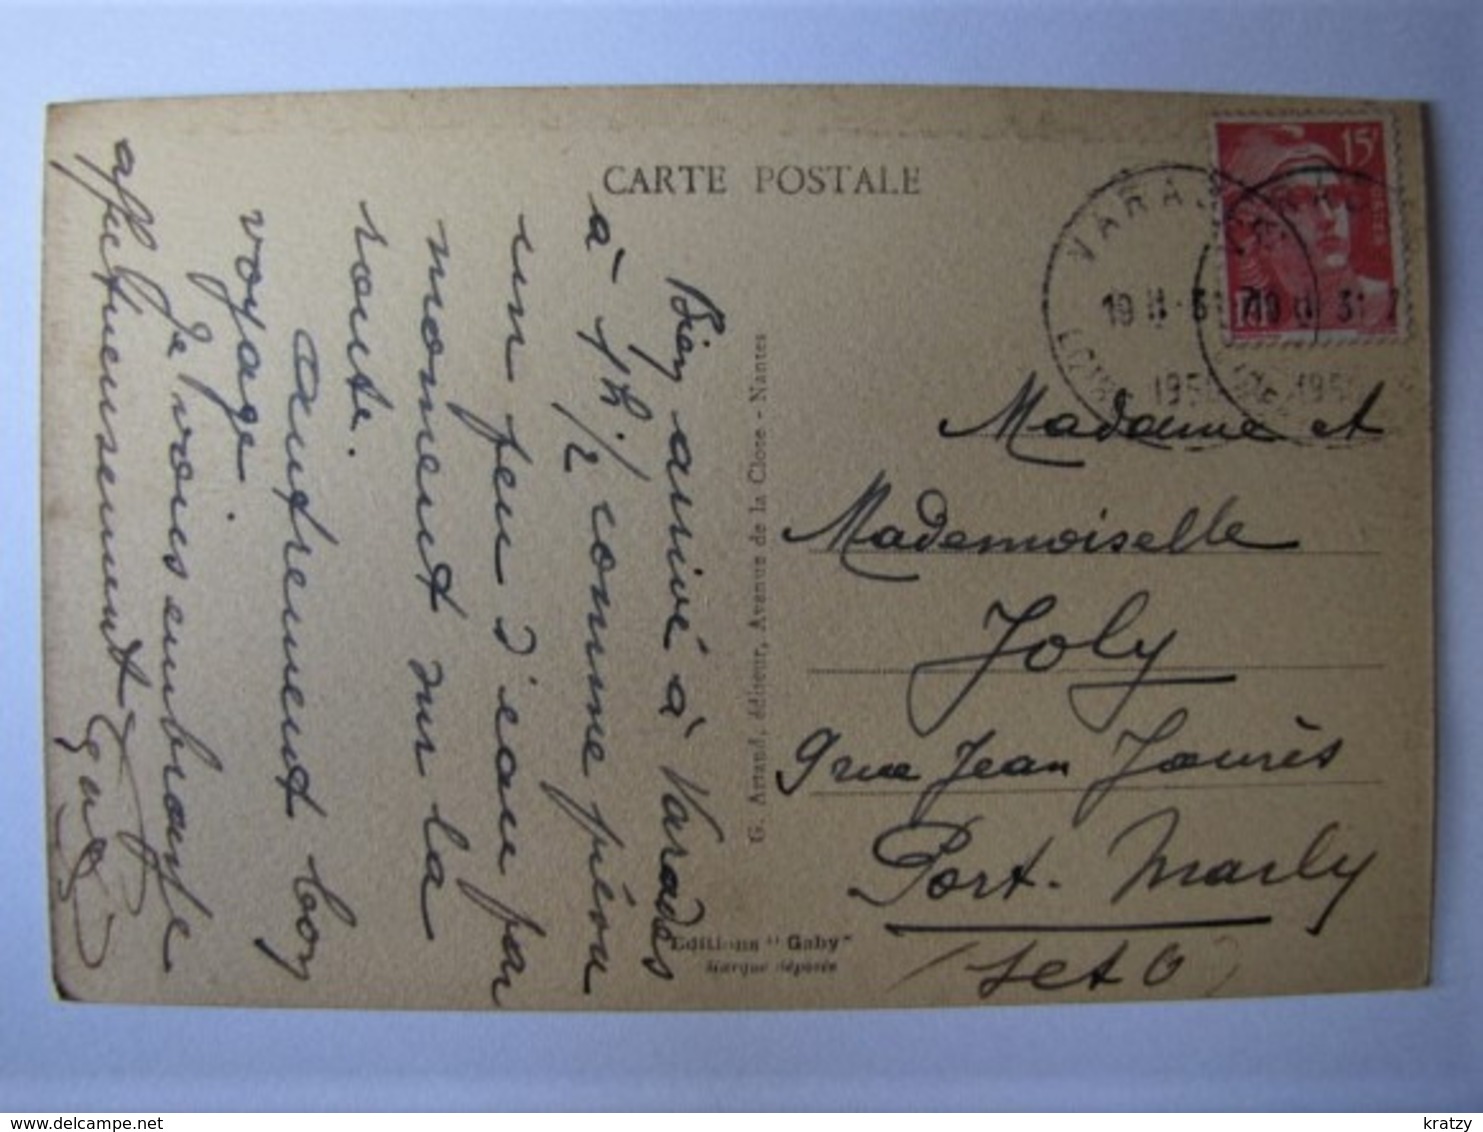 CARTE POSTALE
15F
VARADES
19 H - 31 7
1951
LOIRE
19 H 31 7
195
Bien arrivé à Varades
à 1h. 1/2 comme prévu
un peu d'eau par
moment sur la
route.
Autrement bon
voyage.
Je vous embrasse
affectueusement
G. Artaud, éditeur, Avenue de la Close - Nantes
Madame et
Mademoiselle
Joly
9 rue Jean Jaurès
Port-Marly
(S et O)
Editions "Gaby"
Marque déposée
delcampe.net
kratzy